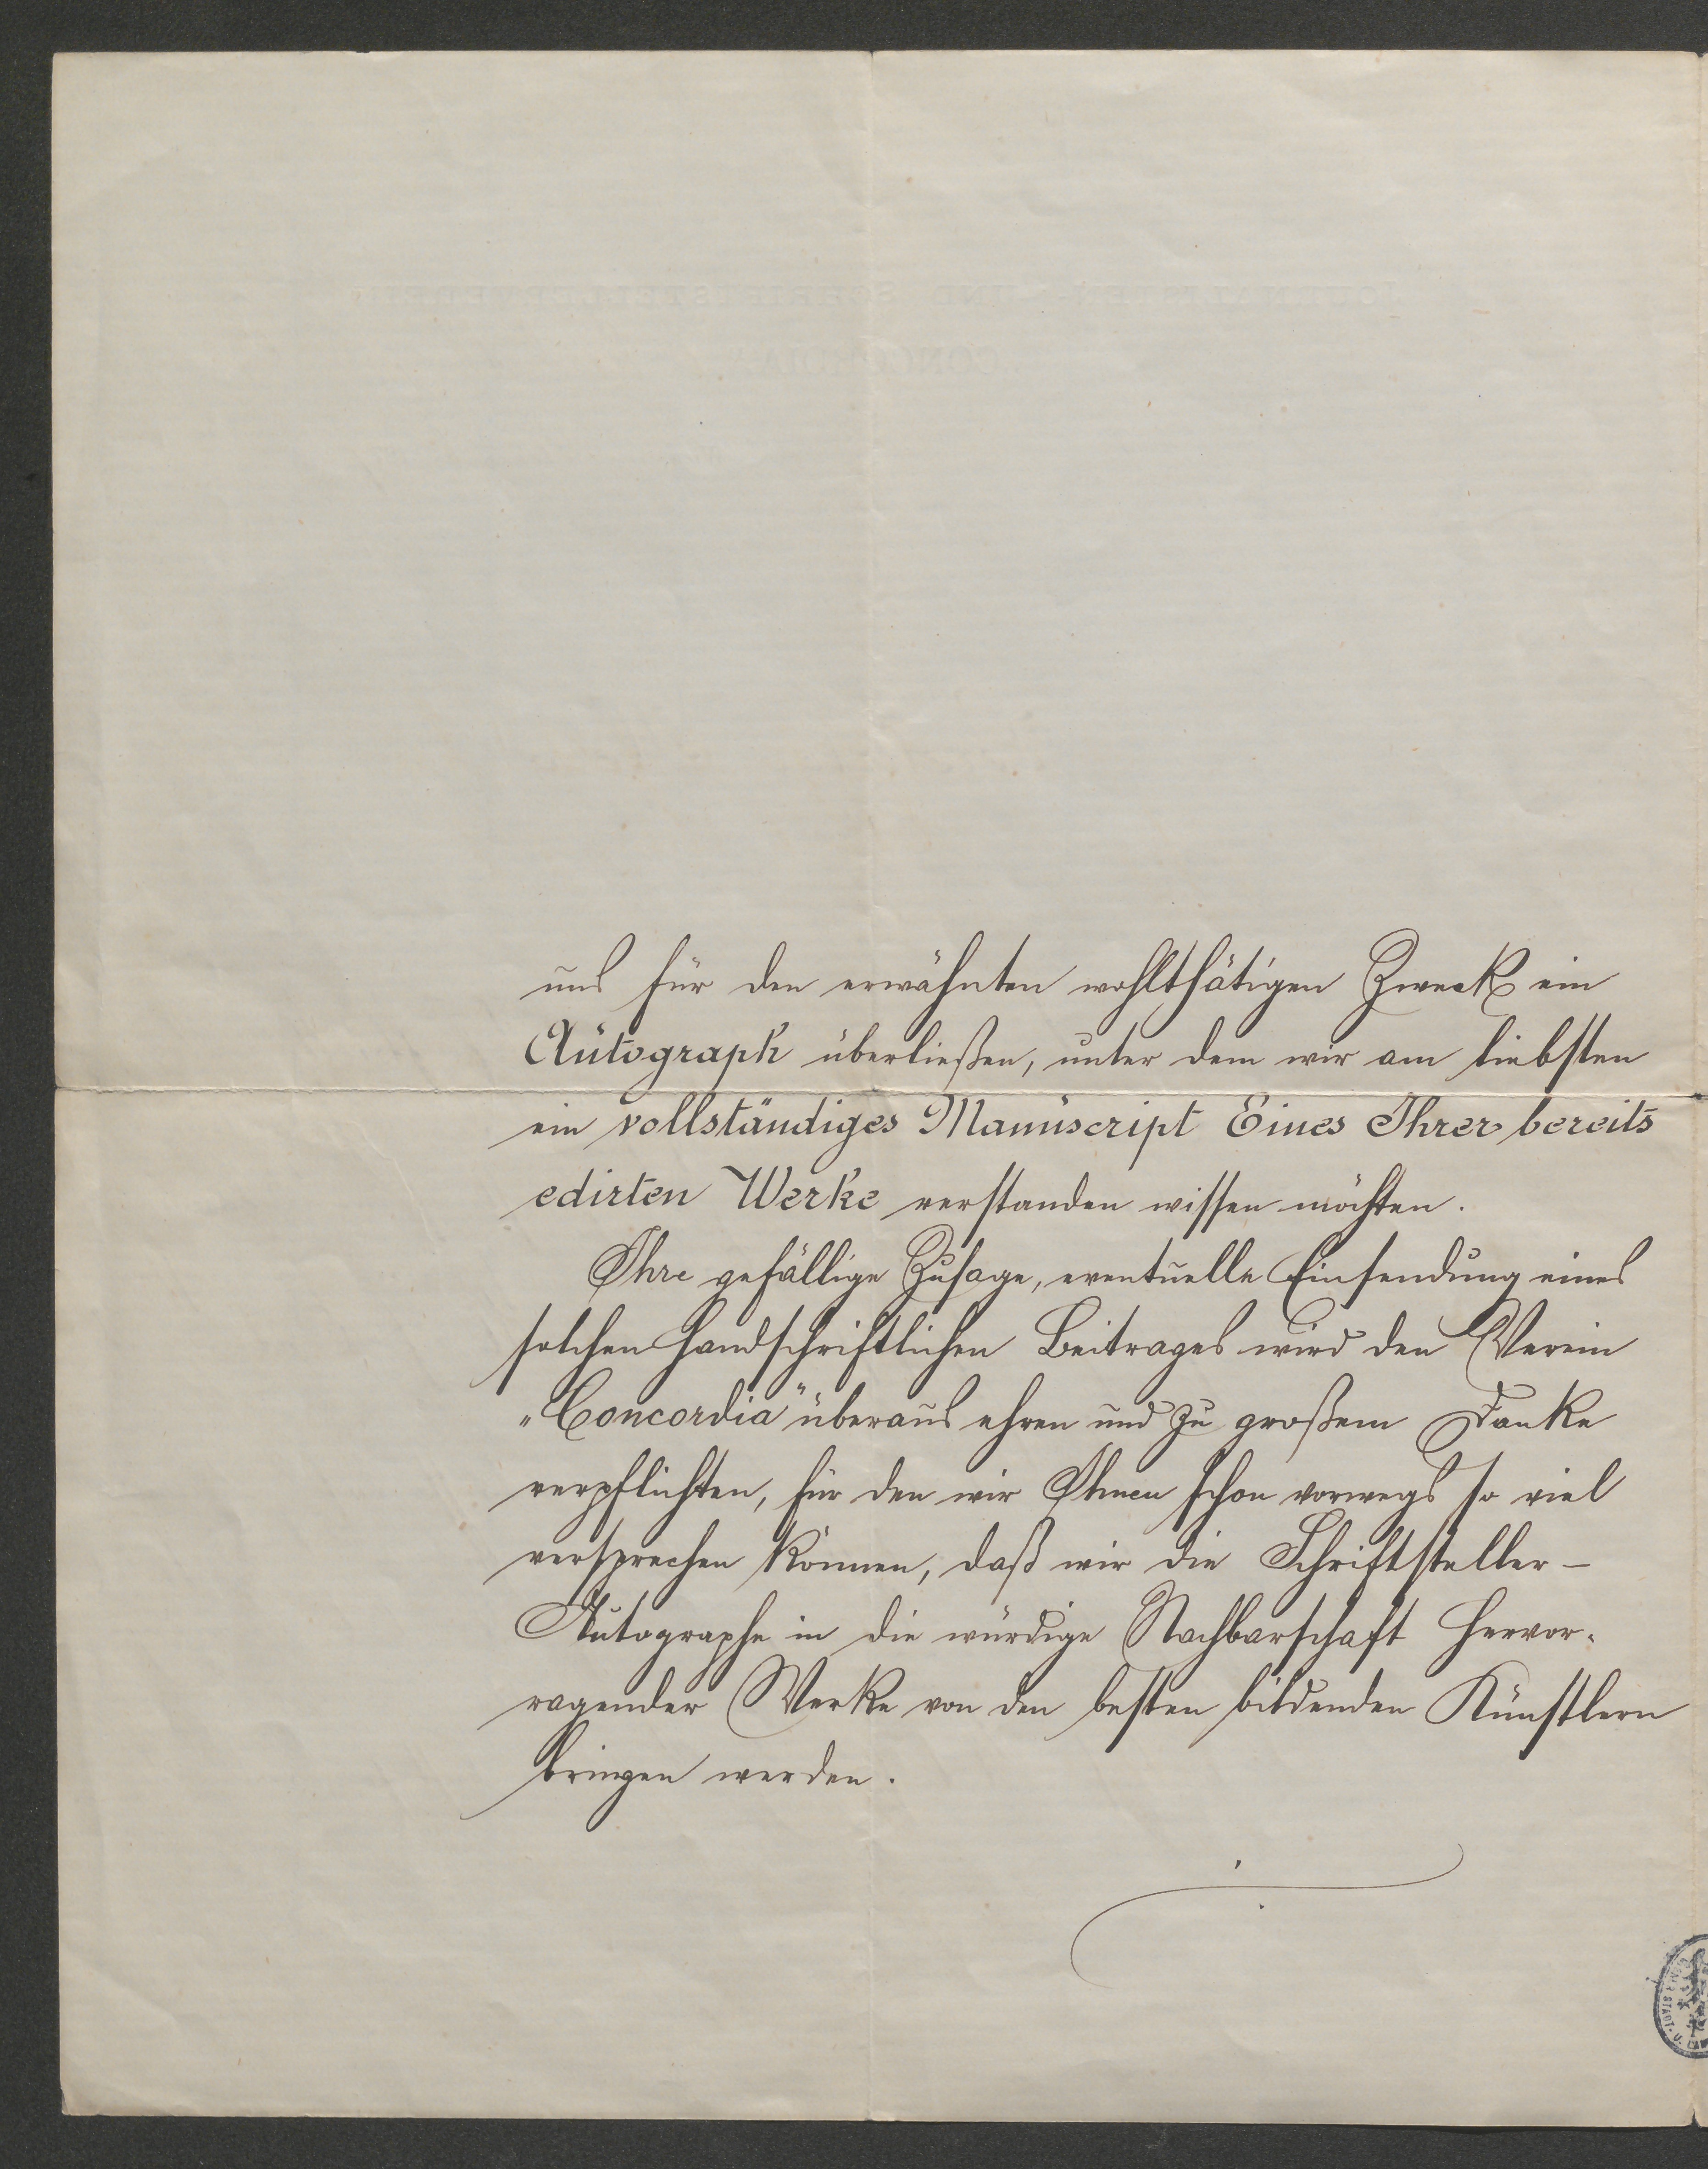 uns für den erwähnten wohlthätigen Zweck ein
Autograph überließen, unter dem wir am liebsten
ein vollständiges Manuscript Eines Ihrer bereits
edirten Werke verstanden wissen möchten.
Ihre gefällige Zusage, eventuelle Einsendung eines
solchen handschriftlichen Beitrages wird den Verein
„Concordia" überaus ehren und zu großem Danke
verpflichten, für den wir Ihnen schon vorwegs so viel
versprechen können, daß wir die Schriftsteller-
Autographe in die würdige Nachbarschaft hervor-
ragender Werke von den besten bildenden Künstlern
bringen werden.